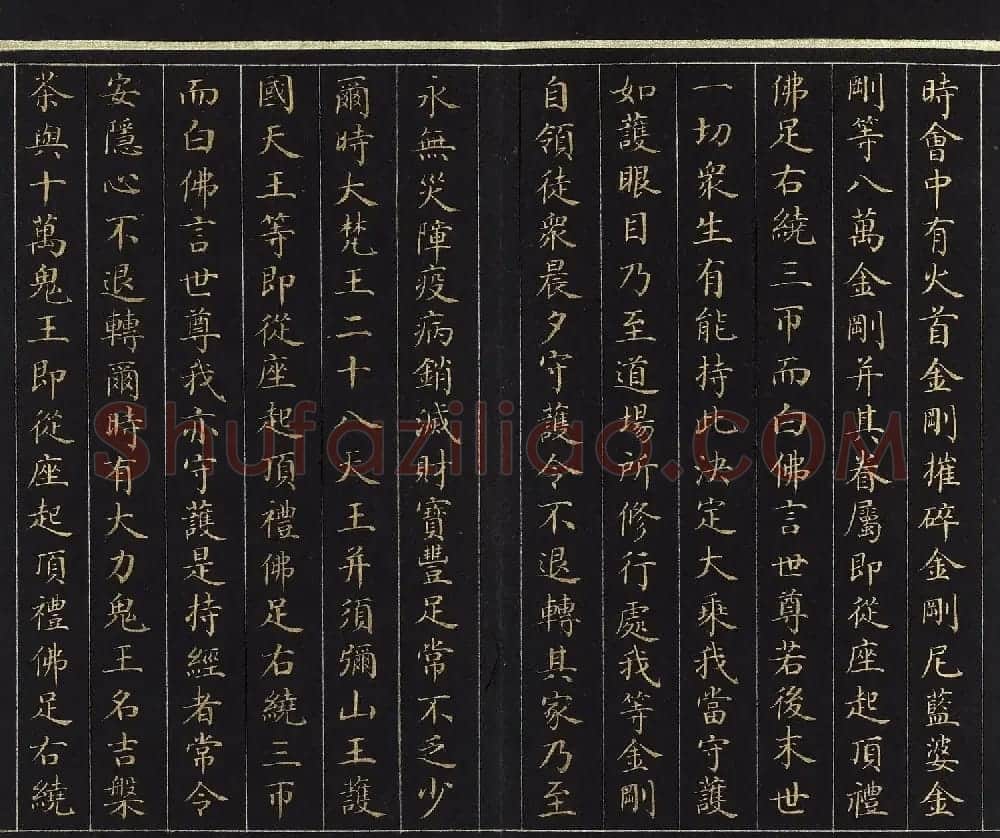 時會中有火首金剛摧碎金剛尼藍婆金
剛等八萬金剛并其眷屬即從座起頂禮
佛足右繞三帀而白佛言世尊若後末世
一切眾生有能持此決定大乘我當守護
如護眼目乃至道場所修行處我等金剛
自領徒眾晨夕守護令不退轉其家乃至
永無災障疫病銷滅財寶豐足常不乏少
爾時大梵王二十八天王并須彌山王護
國天王等即從座起頂禮佛足右繞三帀
而白佛言世尊我亦守護是持經者常令
安隱心不退轉爾時有大力鬼王名吉槃
茶與十萬鬼王即從座起頂禮佛足右繞
Shufaziliao.COM